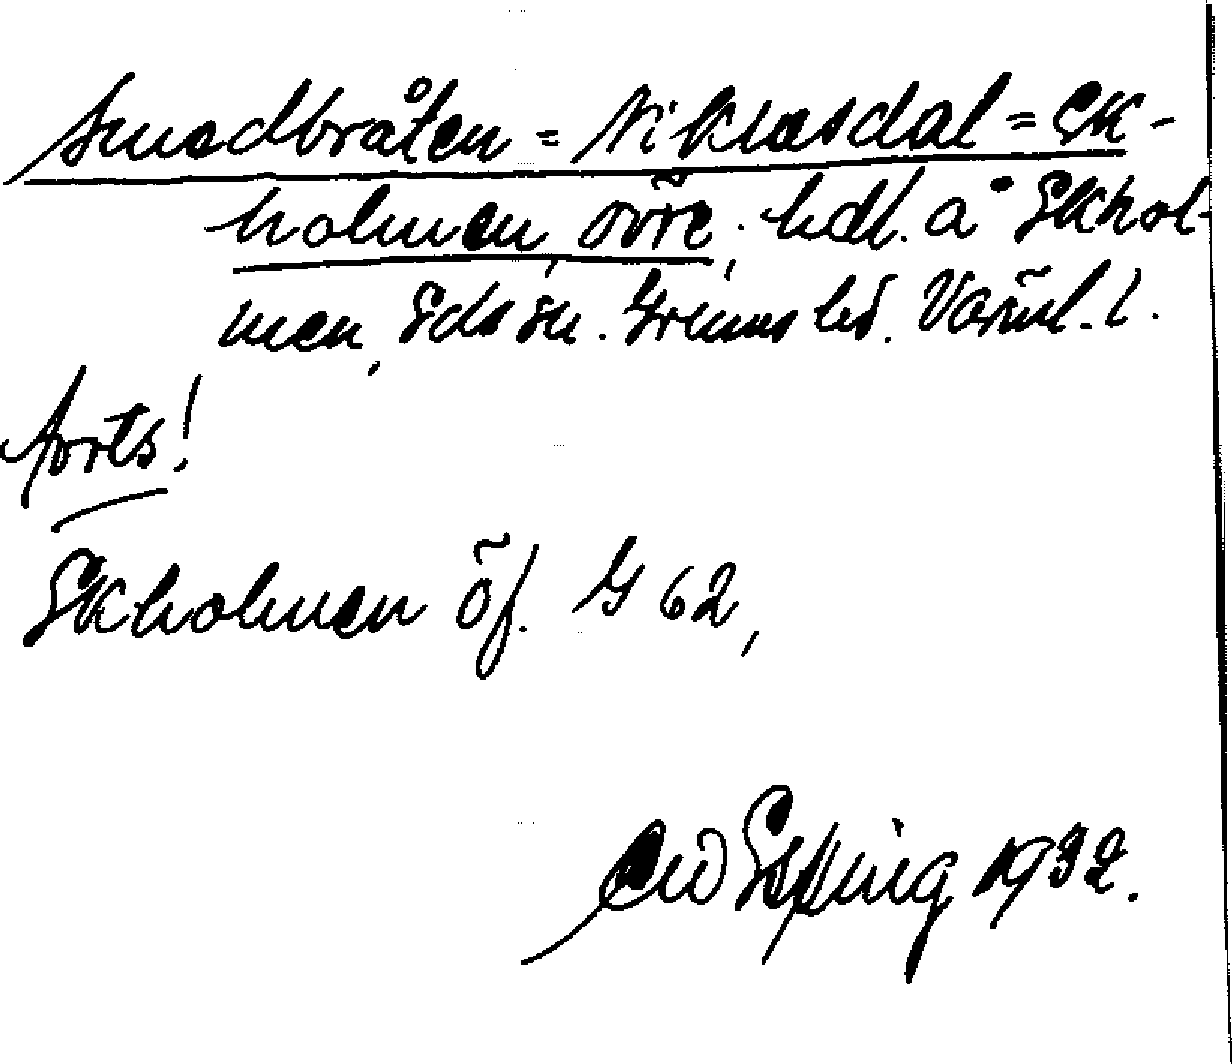 Smedbråten = Niklasdal = Ek-
holmen, övre, hdl. å Ekhol-
men, Eds sn. Grums hd. Värml. l.
forts!
Ekholmen öf. G 62,
Esping 1932.